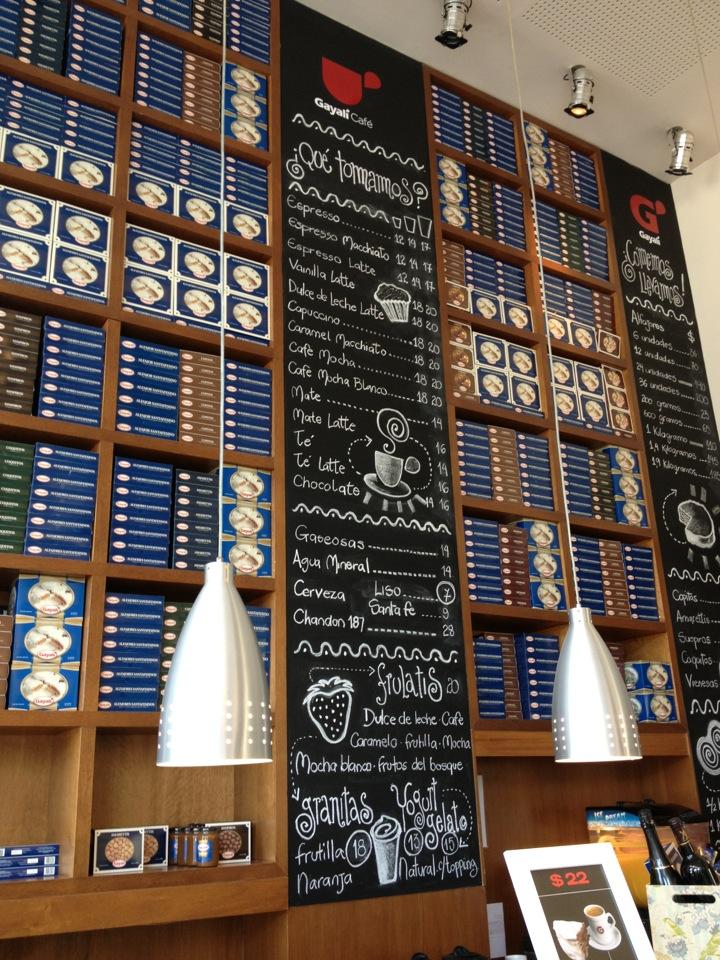 Gayalí Café
¿Qué tomamos?
Espresso 12 14 17
Espresso Macchiato 12 14 17
Espresso Latte 12 14 17
Vainilla Latte 18 20
Dulce de leche Latte 18 20
Capuccino 18 20
Caramel Macchiato 18 20
Café Mocha 18 20
Café Mocha Blanco 18 20
Mate 14
Mate Latte 16
Té 14
Té Latte 16
Chocolate 14 16
Gaseosas 14
Agua Mineral 14
Cerveza Liso 7
Santa fe 9
Chandon 187 28
frulatis 20
Dulce de leche · Café
Caramelo · frutilla · Mocha
Mocha blanco · Frutos del bosque
granitas 18
frutilla
Naranja
Yogurt gelato
13 15
Natural · c/topping
G
Gayalí
¡Comemos
Llevamos!
Alfajores $
6 unidades
12 unidades
24 unidades
36 unidades
200 gramos
600 gramos
1 Kilogramo
1,4 Kilogramos
1,9 Kilogramos
Capitas
Amarettis
Suspiros
Coquitos
Vienesas
$22
ALFAJOR SANTAFESINO
Gayalí